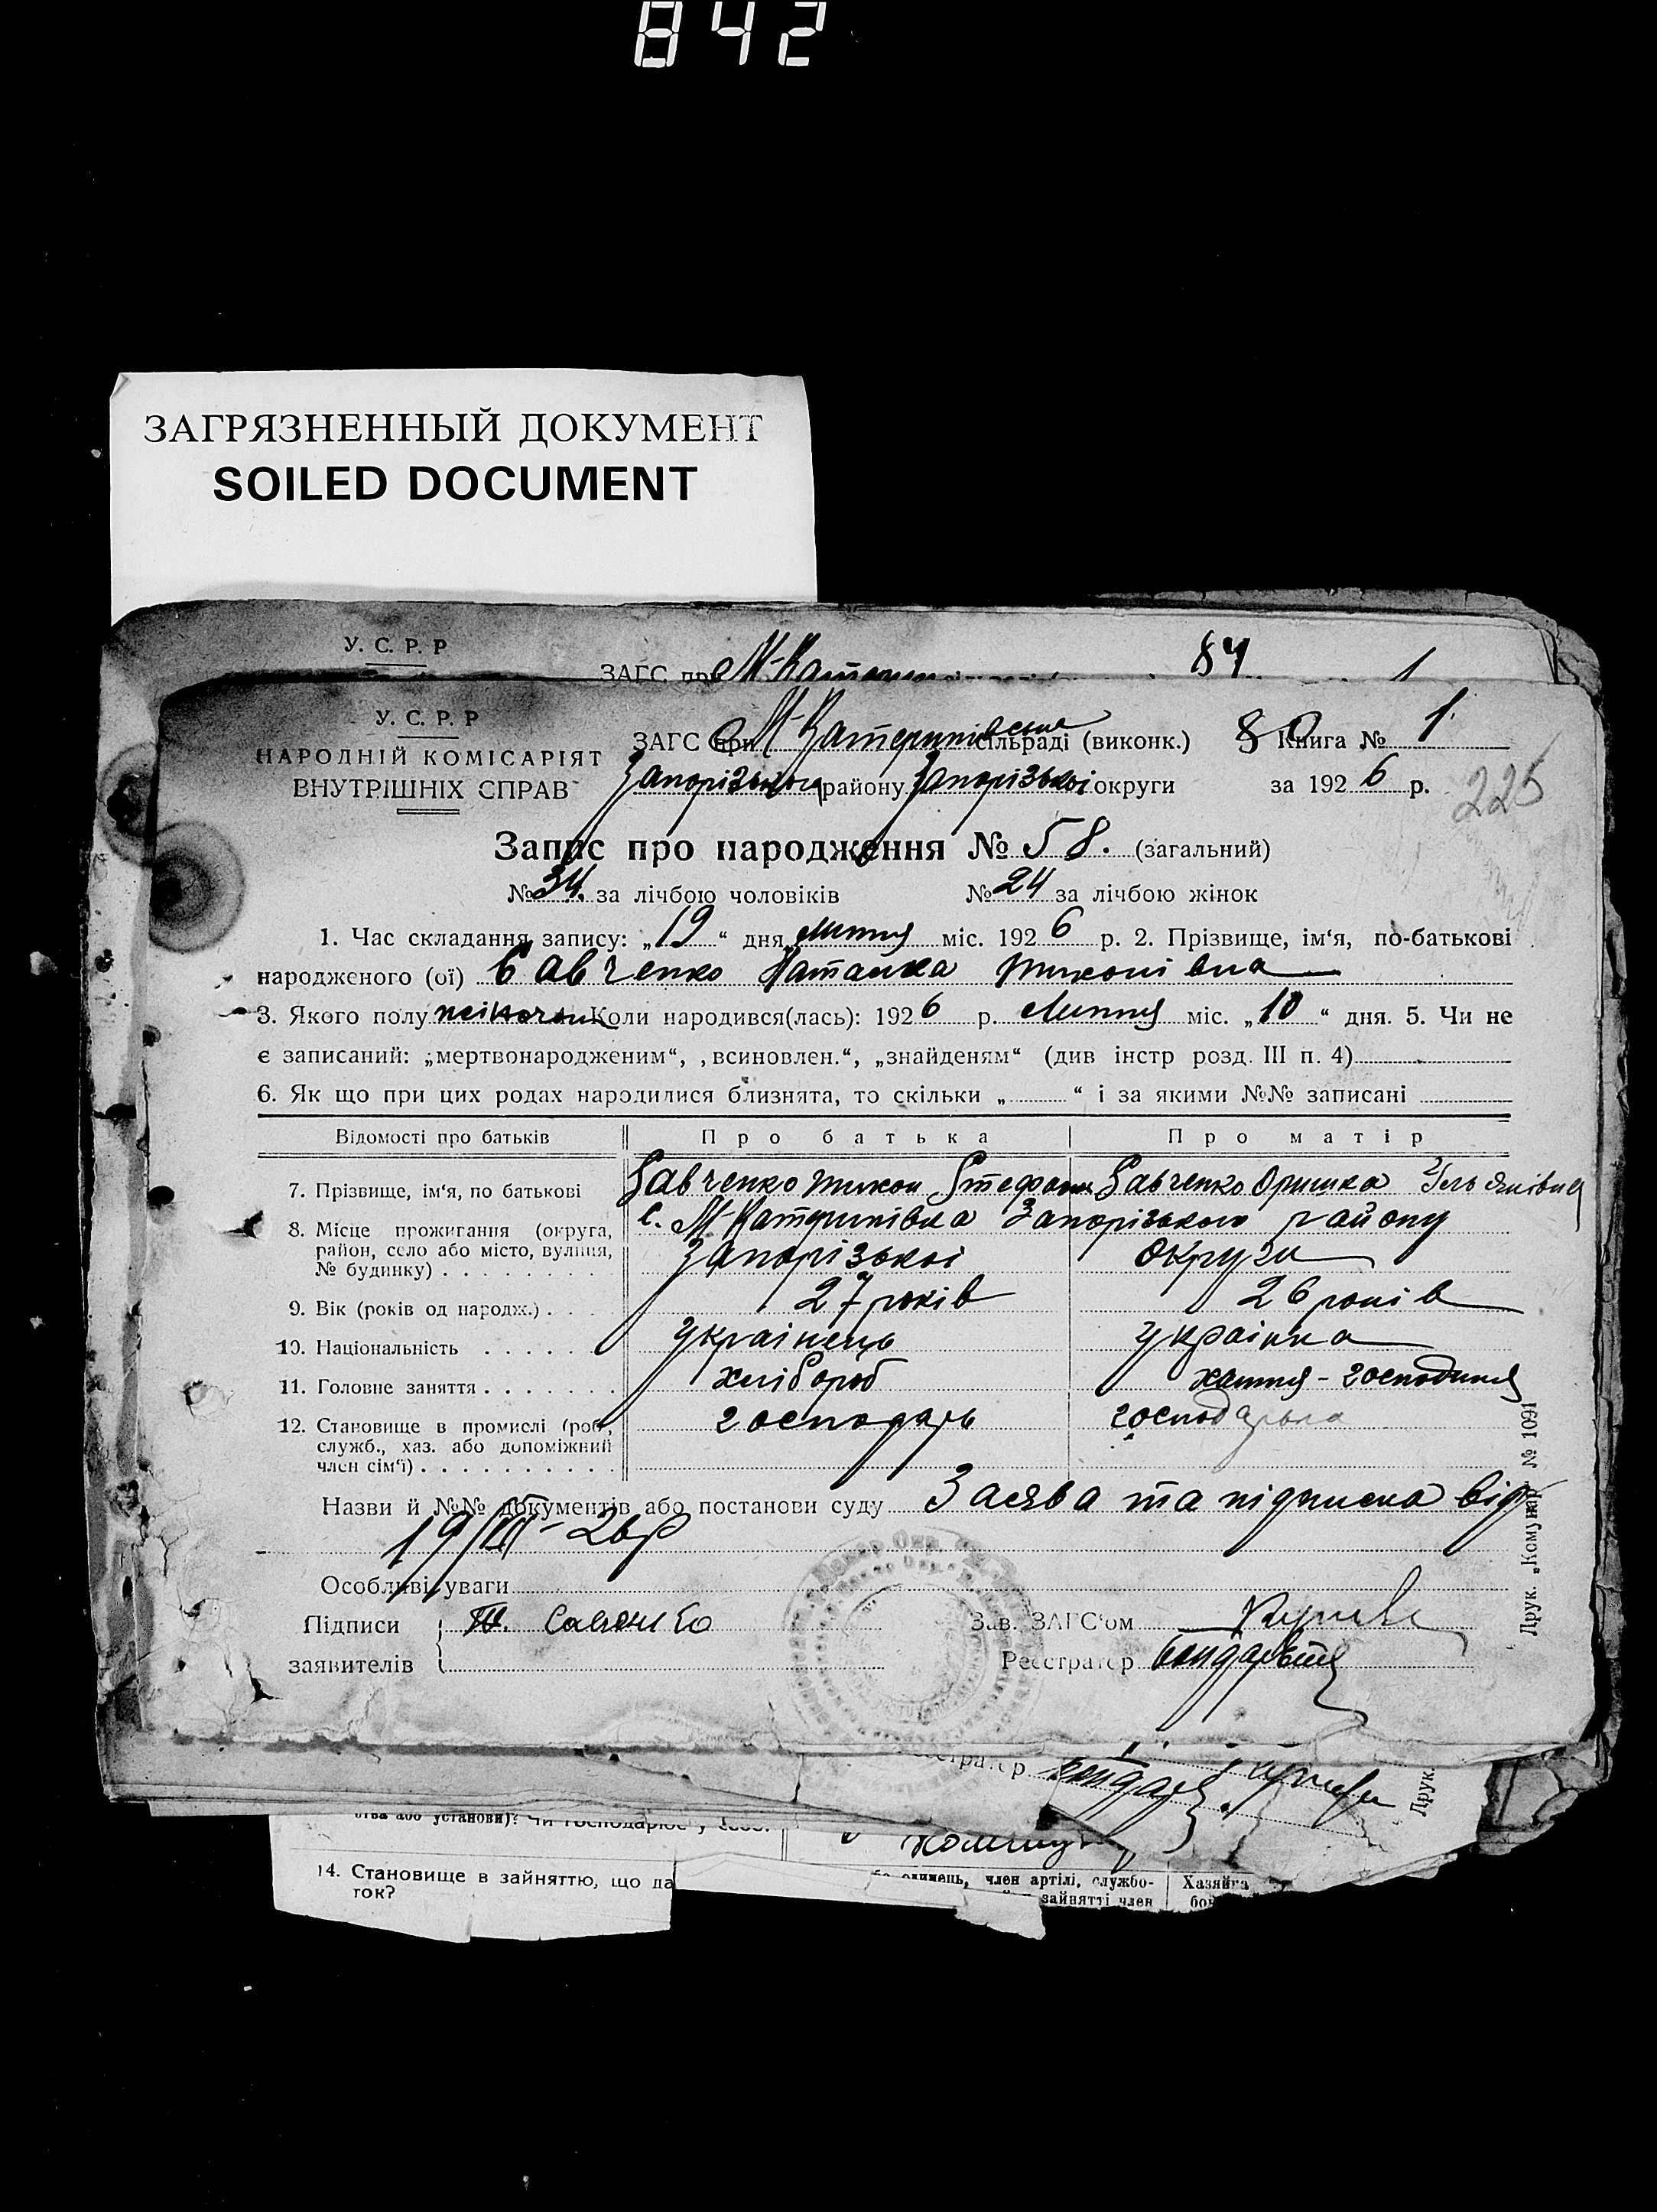 842
ЗАГРЯЗНЕННЫЙ ДОКУМЕНТ
SOILED DOCUMENT
У. С. Р. Р
ЗАГС при М-Катерин
84
1
У. С. Р. Р
НАРОДНІЙ КОМІСАРІЯТ
ВНУТРІШНІХ СПРАВ
ЗАГС при М-Катеринівські сільраді (виконк.) 80 Книга № 1
Запорізького району Запорізької округи за 1926 р.
225
Запис про народження № 58. (загальний)
№ 34. за лічбою чоловіків № 24 за лічбою жінок
1. Час складання запису: „19“ дня Липня міс. 1926 р. 2. Прізвище, ім‘я, по-батькові
народженого (ої) Савченко Наталка Тихонівна
3. Якого полу жіночого Коли народився(лась): 1926 р. Липня міс. „10“ дня. 5. Чи не
є записаний: „мертвонародженим“, „всиновлен.“, „знайденям“ (див інстр розд. III п. 4)
6. Як що при цих родах народилися близнята, то скільки „ “ і за якими №№ записані
Відомості про батьків Про батька Про матір
7. Прізвище, ім‘я, по батькові Савченко Тихон Стефанов Савченко Оришка
8. Місце прожигання (округа, район, село або місто, вулиця, № будинку) с. М-Катеринівка Запорізького району
Запорізької округи
9. Вік (років од народж.) 27 років 26 років
10. Національність Українець Українка
11. Головне заняття хлібороб хатня - господиня
12. Становище в промислі (роб., служб., хаз. або допоміжний член сім‘ї) господарь господарька
Назви й №№ документів або постанови суду Заява та підписка від
19/VII - 26 р
Особливі уваги
Підписи заявителів Т. Савченко
Зав. ЗАГС‘ом
Реєстратор
Друк. „Комунар“ № 1091
Друк.
14. Становище в зайняттю, що да
ток?
член артілі, службо-
зайнятті член
Хазяйна